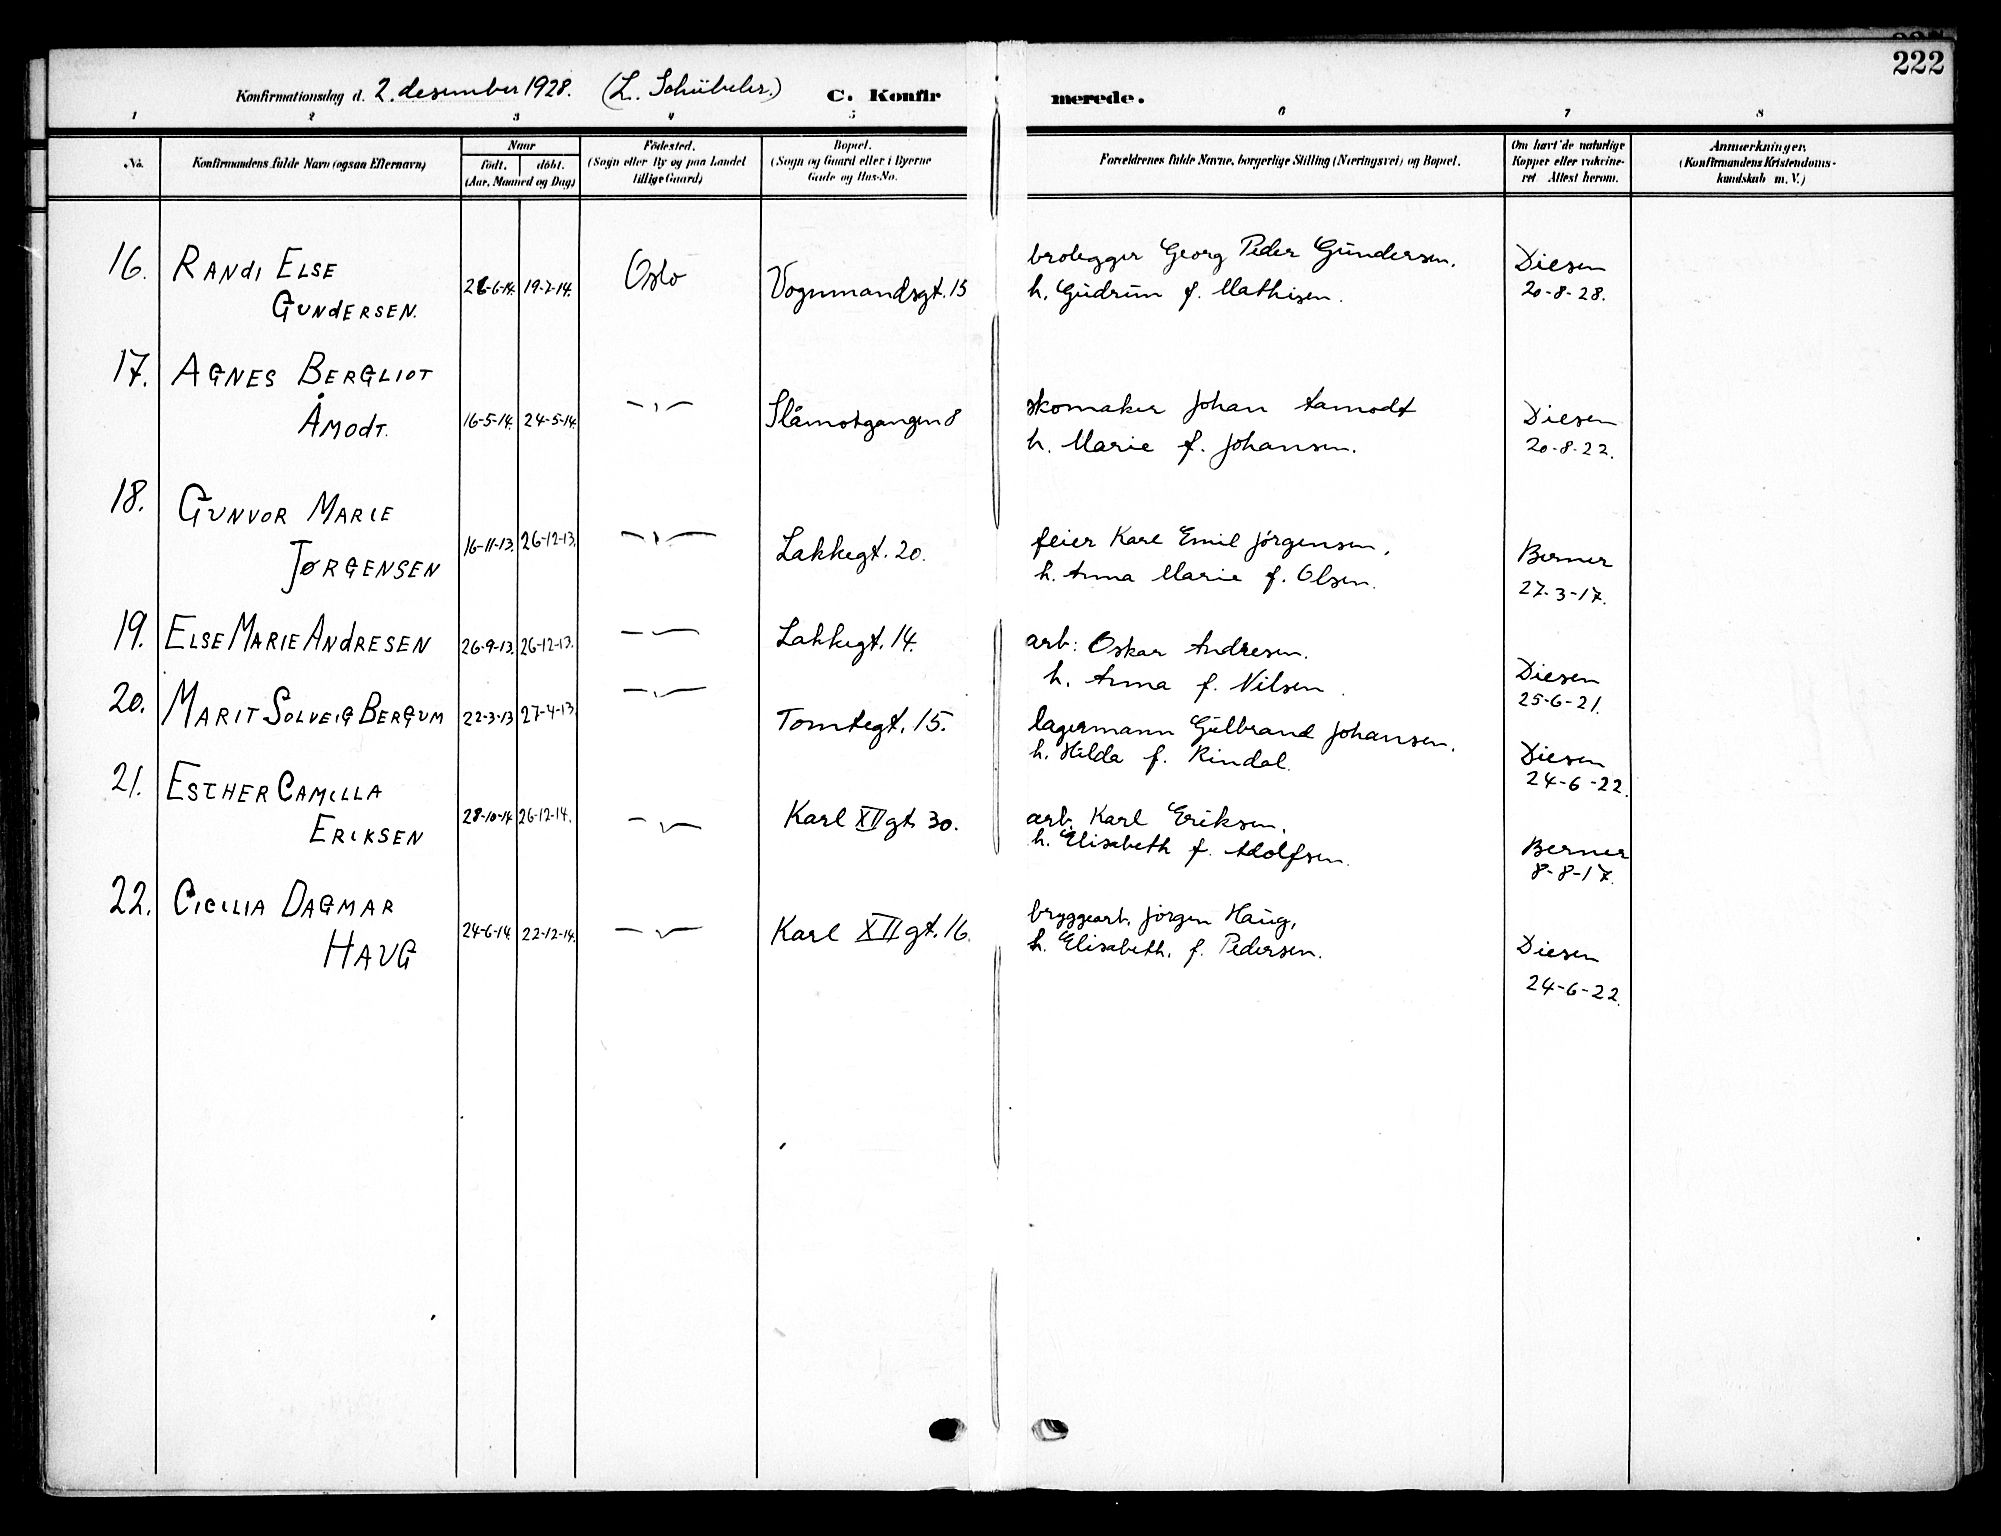 222
Konfirmationsdag d. 2. desember 1928. (L. Schübeler.) C. Konfirmerede.
1 2 3 4 5 6 7 8
No. Konfirmandens fulde Navn (ogsaa Efternavn) Naar født. døbt. (Aar, Maaned og Dag) Fødested. (Sogn eller By og paa Landet tillige Gaard) Bopæl. (Sogn og Gaard eller i Byerne Gade og Hus-No. Forældrenes fulde Navne, borgerlige Stilling (Næringsvei) og Bopæl. Om havt de naturlige Kopper eller vakcineret Attest herom. Anmærkninger. (Konfirmandens Kristendomskundskab m. V.)
16. RANdI ELSE Oslo brolegger Georg Peder Gundersen. Diesen
GUNdERSEN. 19-7-14. Vognmandsgt. 15 h. Gudrun f. Mathisen. 20-8-28.
17. AGNES BERGLIOT
ÅMOdT. 16-5-14. 24-5-14. -"- Slåmotgangen 8 skomaker Johan Aamodt Diesen
h. Marie f. Johansen. 20-8-22.
18. GUNVOR MARIE
JØRGENSEN 16-11-13. 26-12-13. -"- Lakkegt. 20. feier Karl Emil Jørgensen. Berner
h. Anna Marie f. Olsen. 27-3-17.
19. ELSE MARIE ANdRESEN 26-9-13. 26-12-13. -"- Lakkegt. 14. arb. Oskar Andresen. Diesen
h. Anna f. Nilsen. 25-6-21.
20. MARIT SOLVEIG BERGUM 22-3-13 27-4-13. -"- Tomtegt. 15. lagermann Gulbrand Johansen. Diesen
h. Hilda f. Rindal. 24-6-22.
21. ESTHER CAMILLA
ERIKSEN 28-10-14 26-12-14. -"- Karl XII gt. 30. arb. Karl Eriksen. Berner
h. Elisabeth f. Adolfsen. 8-8-17.
22. CICILIA DAGMAR bryggearb. Jørgen Haug,
HAUG 24-6-14 22-12-14. -"- Karl XII gt. 16. h. Elisabeth. f. Pedersen. Diesen
24-6-22.